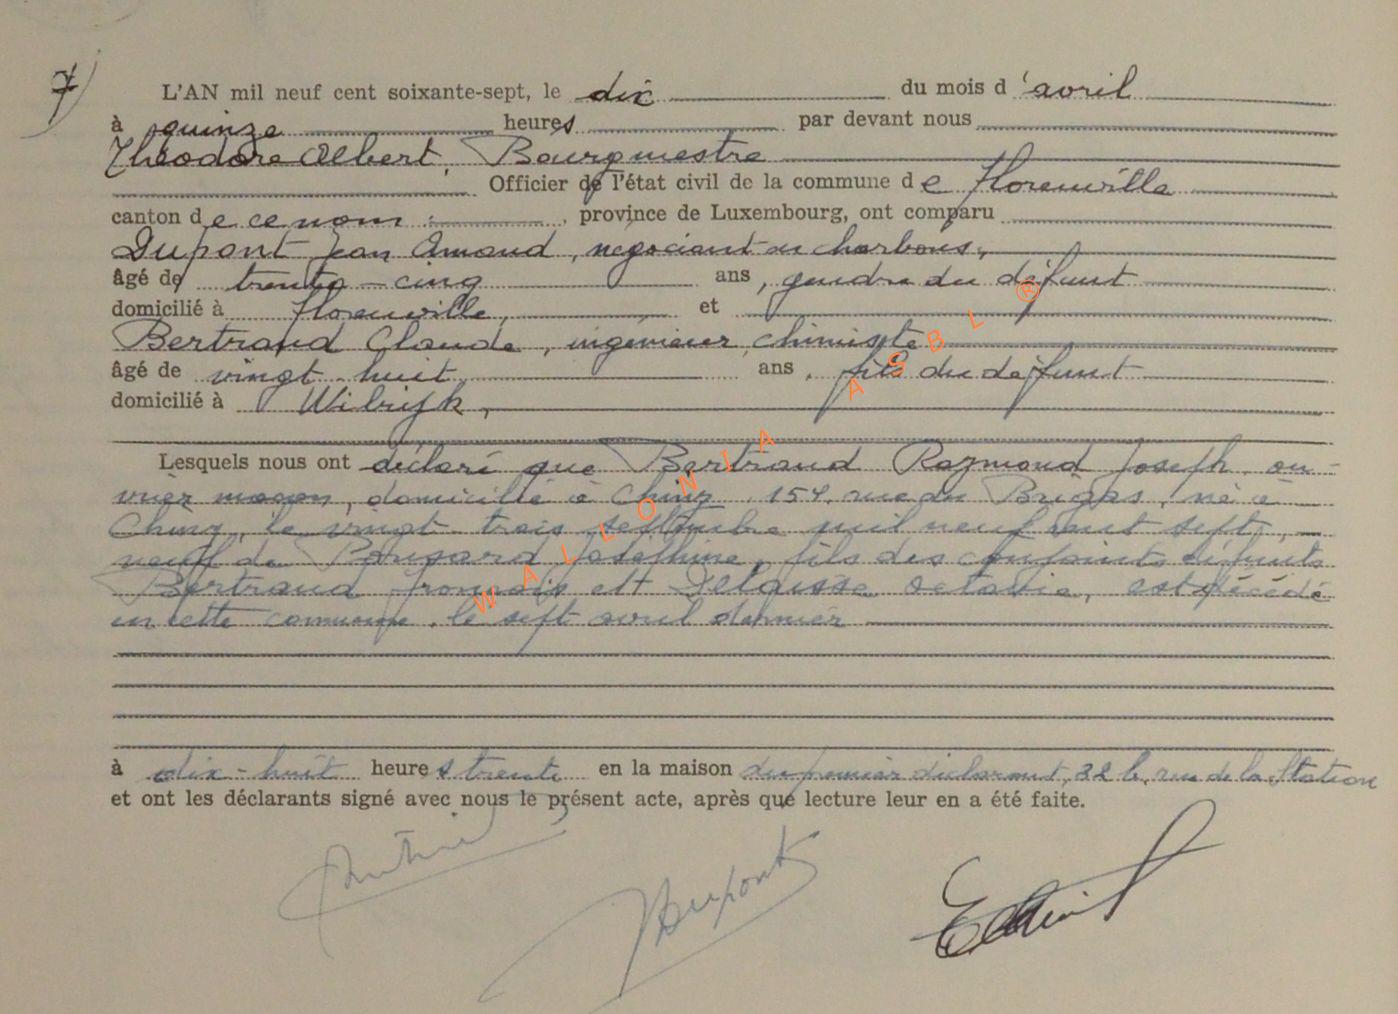 7)
L'AN mil neuf cent soixante-sept, le dix du mois d'avril
à quinze heures par devant nous
Théodore Albert, Bourgmestre
Officier de l'état civil de la commune de Florenville
canton de ce nom, province de Luxembourg, ont comparu
Dupont Jean Amand, négociant en charbons,
âgé de trente-cinq ans, gendre du défunt
domicilié à Florenville, et
Bertrand Claude, ingénieur chimiste
âgé de vingt-huit ans, fils du défunt
domicilié à Wilrijk,
Lesquels nous ont déclaré que Bertrand Raymond Joseph, ou-
vrier maçon, domicilié à Chiny, 154, rue du, né à
Chiny, le vingt-trois septembre mil neuf cent sept,
veuf de Joséphine, fils des conjoints défunts
Bertrand François et Delaisse Octavie, est décédé
en cette commune, le sept avril dernier
à dix-huit heures trente en la maison du premier déclarant, 32 b, rue de la Station
et ont les déclarants signé avec nous le présent acte, après que lecture leur en a été faite.
JDupont
WALLONIA ASBL ®